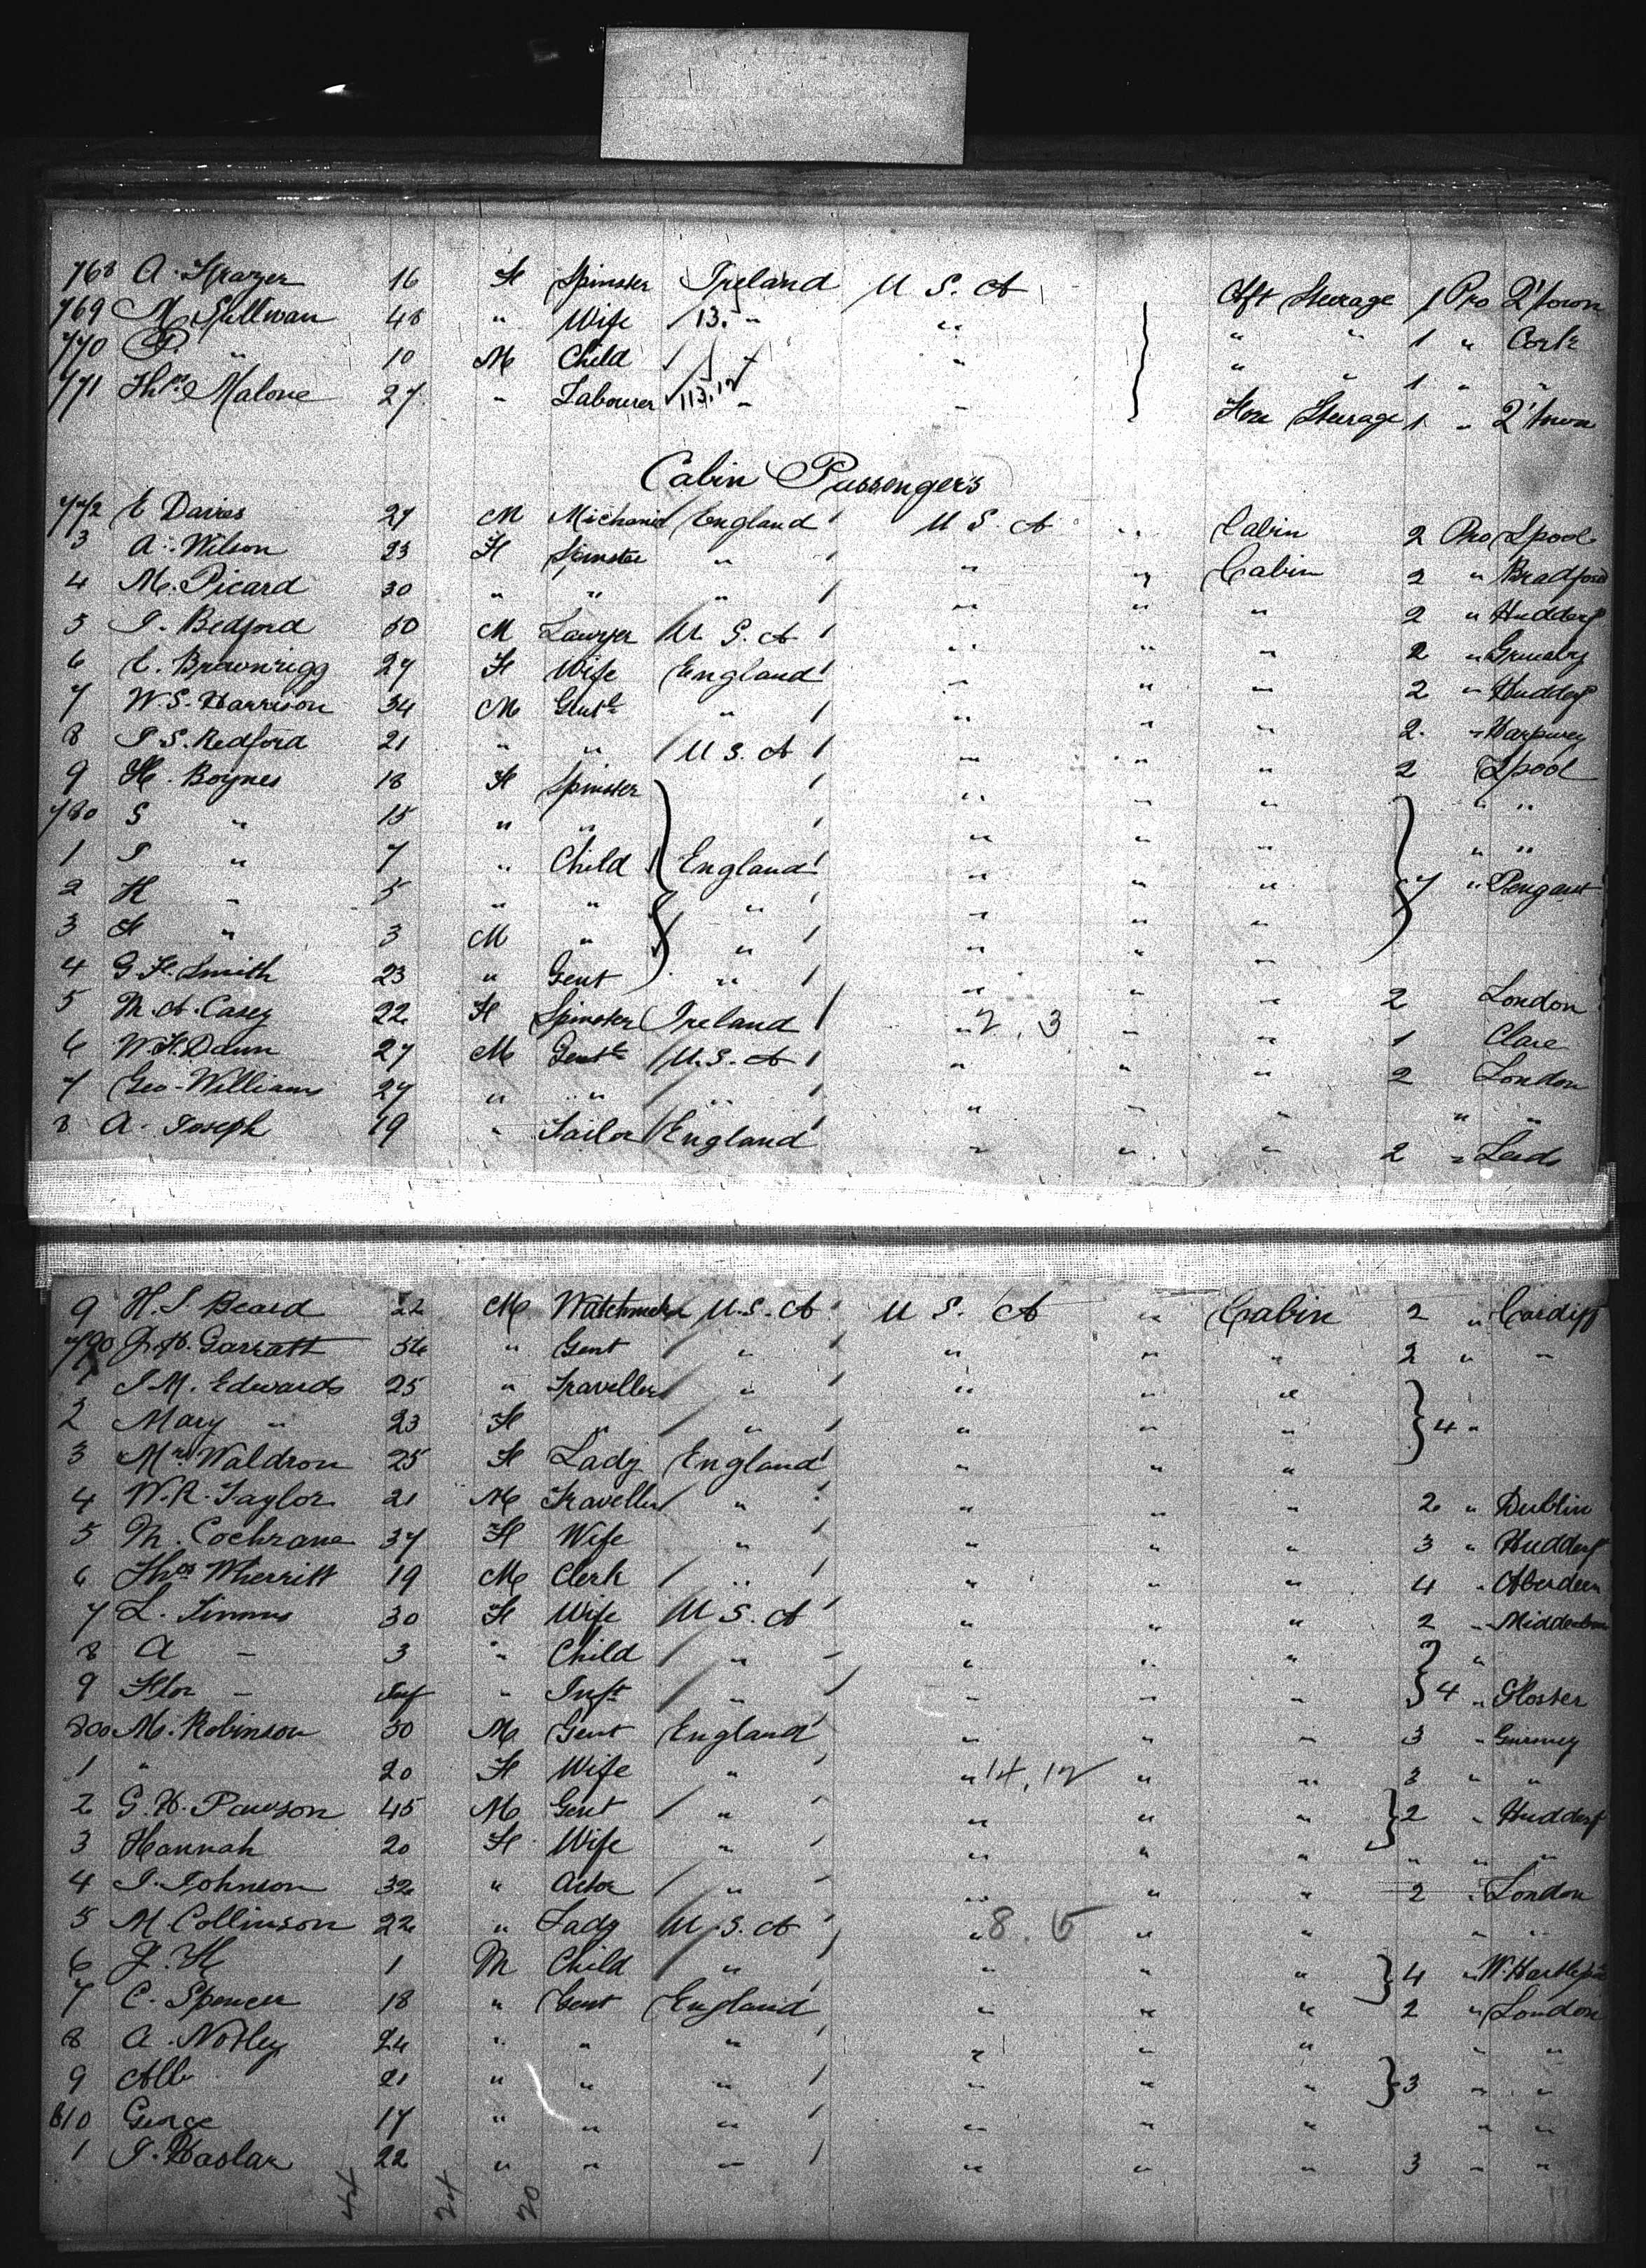 768 A. Frazer 16 F Spinster Ireland U S. A Aft Steerage 1 Pro Q'town
769 M. Sullivan 48 " Wife 13. " " " " 1 " Cork
770 P. " 10 M Child " " " 1 " "
771 Thos Malone 27 " Labourer 113.12 " " Fore Steerage 1 " Q'town
Cabin Passengers
772 E Davies 27 M Michanic England U S. A " Cabin 2 Pro Lpool
3 A. Wilson 23 F Spinster " " " Cabin 2 " Bradford
4 M. Picard 30 " " " " " " 2 " Huddersf
5 J. Bedford 50 M Lawyer U. S. A " " " 2 " Grimsby
6 E. Brownrigg 27 F Wife England " " " 2 " Huddsf
7 W. S. Harrison 34 M Gent " " " " 2 "
8 J. S. Redford 21 " " U. S. A " " " 2 Lpool
9 H. Boynes 18 F Spinster " " " " "
780 S " 15 " " " " " " "
1 " 7 " Child England " " " 7 "
2 H " 5 " " " " " "
3 F " 3 M " " " " "
4 G. F. Smith 23 " Gent " " " " 2 London
5 M. A. Casey 22 F Spinster Ireland " 2, 3 " " 1 Clare
6 W. F. Dann 27 M Gent U. S. A " " " 2 London
7 Geo. Williams 27 " " " " " " " "
8 A. Joseph 19 " Tailor England " " " 2 " Leeds
9 H. S. Beard 22 M Watchmaker U. S. A U S. A " Cabin 2 " Cardiff
790 J. H. Garratt 36 " Gent " " " " 2 " "
1 J. M. Edwards 25 " Traveller " " " "
2 Mary " 23 F " " " " " 4 "
3 Mrs Waldron 25 F Lady England " " "
4 W. R. Taylor 21 M Traveller " " " " 2 " Dublin
5 M. Cochrane 37 F Wife " " " " 3 " Huddersf
6 Thos Wherritt 19 M Clerk " " " " 4 " Aberdeen
7 L. Simms 30 F Wife U S. A " " " 2 "
8 A " 3 " Child " " " " "
9 Flor " Inf " Inft " " " " 4 " Gloster
800 M. Robinson 30 M Gent England " " " 3 "
1 " 20 F Wife " " 14, 12 " " 3 " "
2 G. H. Pawson 45 M Gent " " " " 2 " Huddersf
3 Hannah 20 F Wife " " " " " " "
4 J. Johnson 32 " Actor " " " " 2 " London
5 M Collinson 22 " Lady U. S. A " 8. 5 " " " "
6 J. H 1 M Child " " " " 4 " W. Hartlepool
7 C. Spencer 18 " Gent England " " " 2 " London
8 A. Notley 24 " " " " " " " "
9 Alb. 21 " " " " " " 3 " "
810 George 17 " " " " " " " "
1 J. Haslar 22 " " " " " " 3 " "
44 24 20